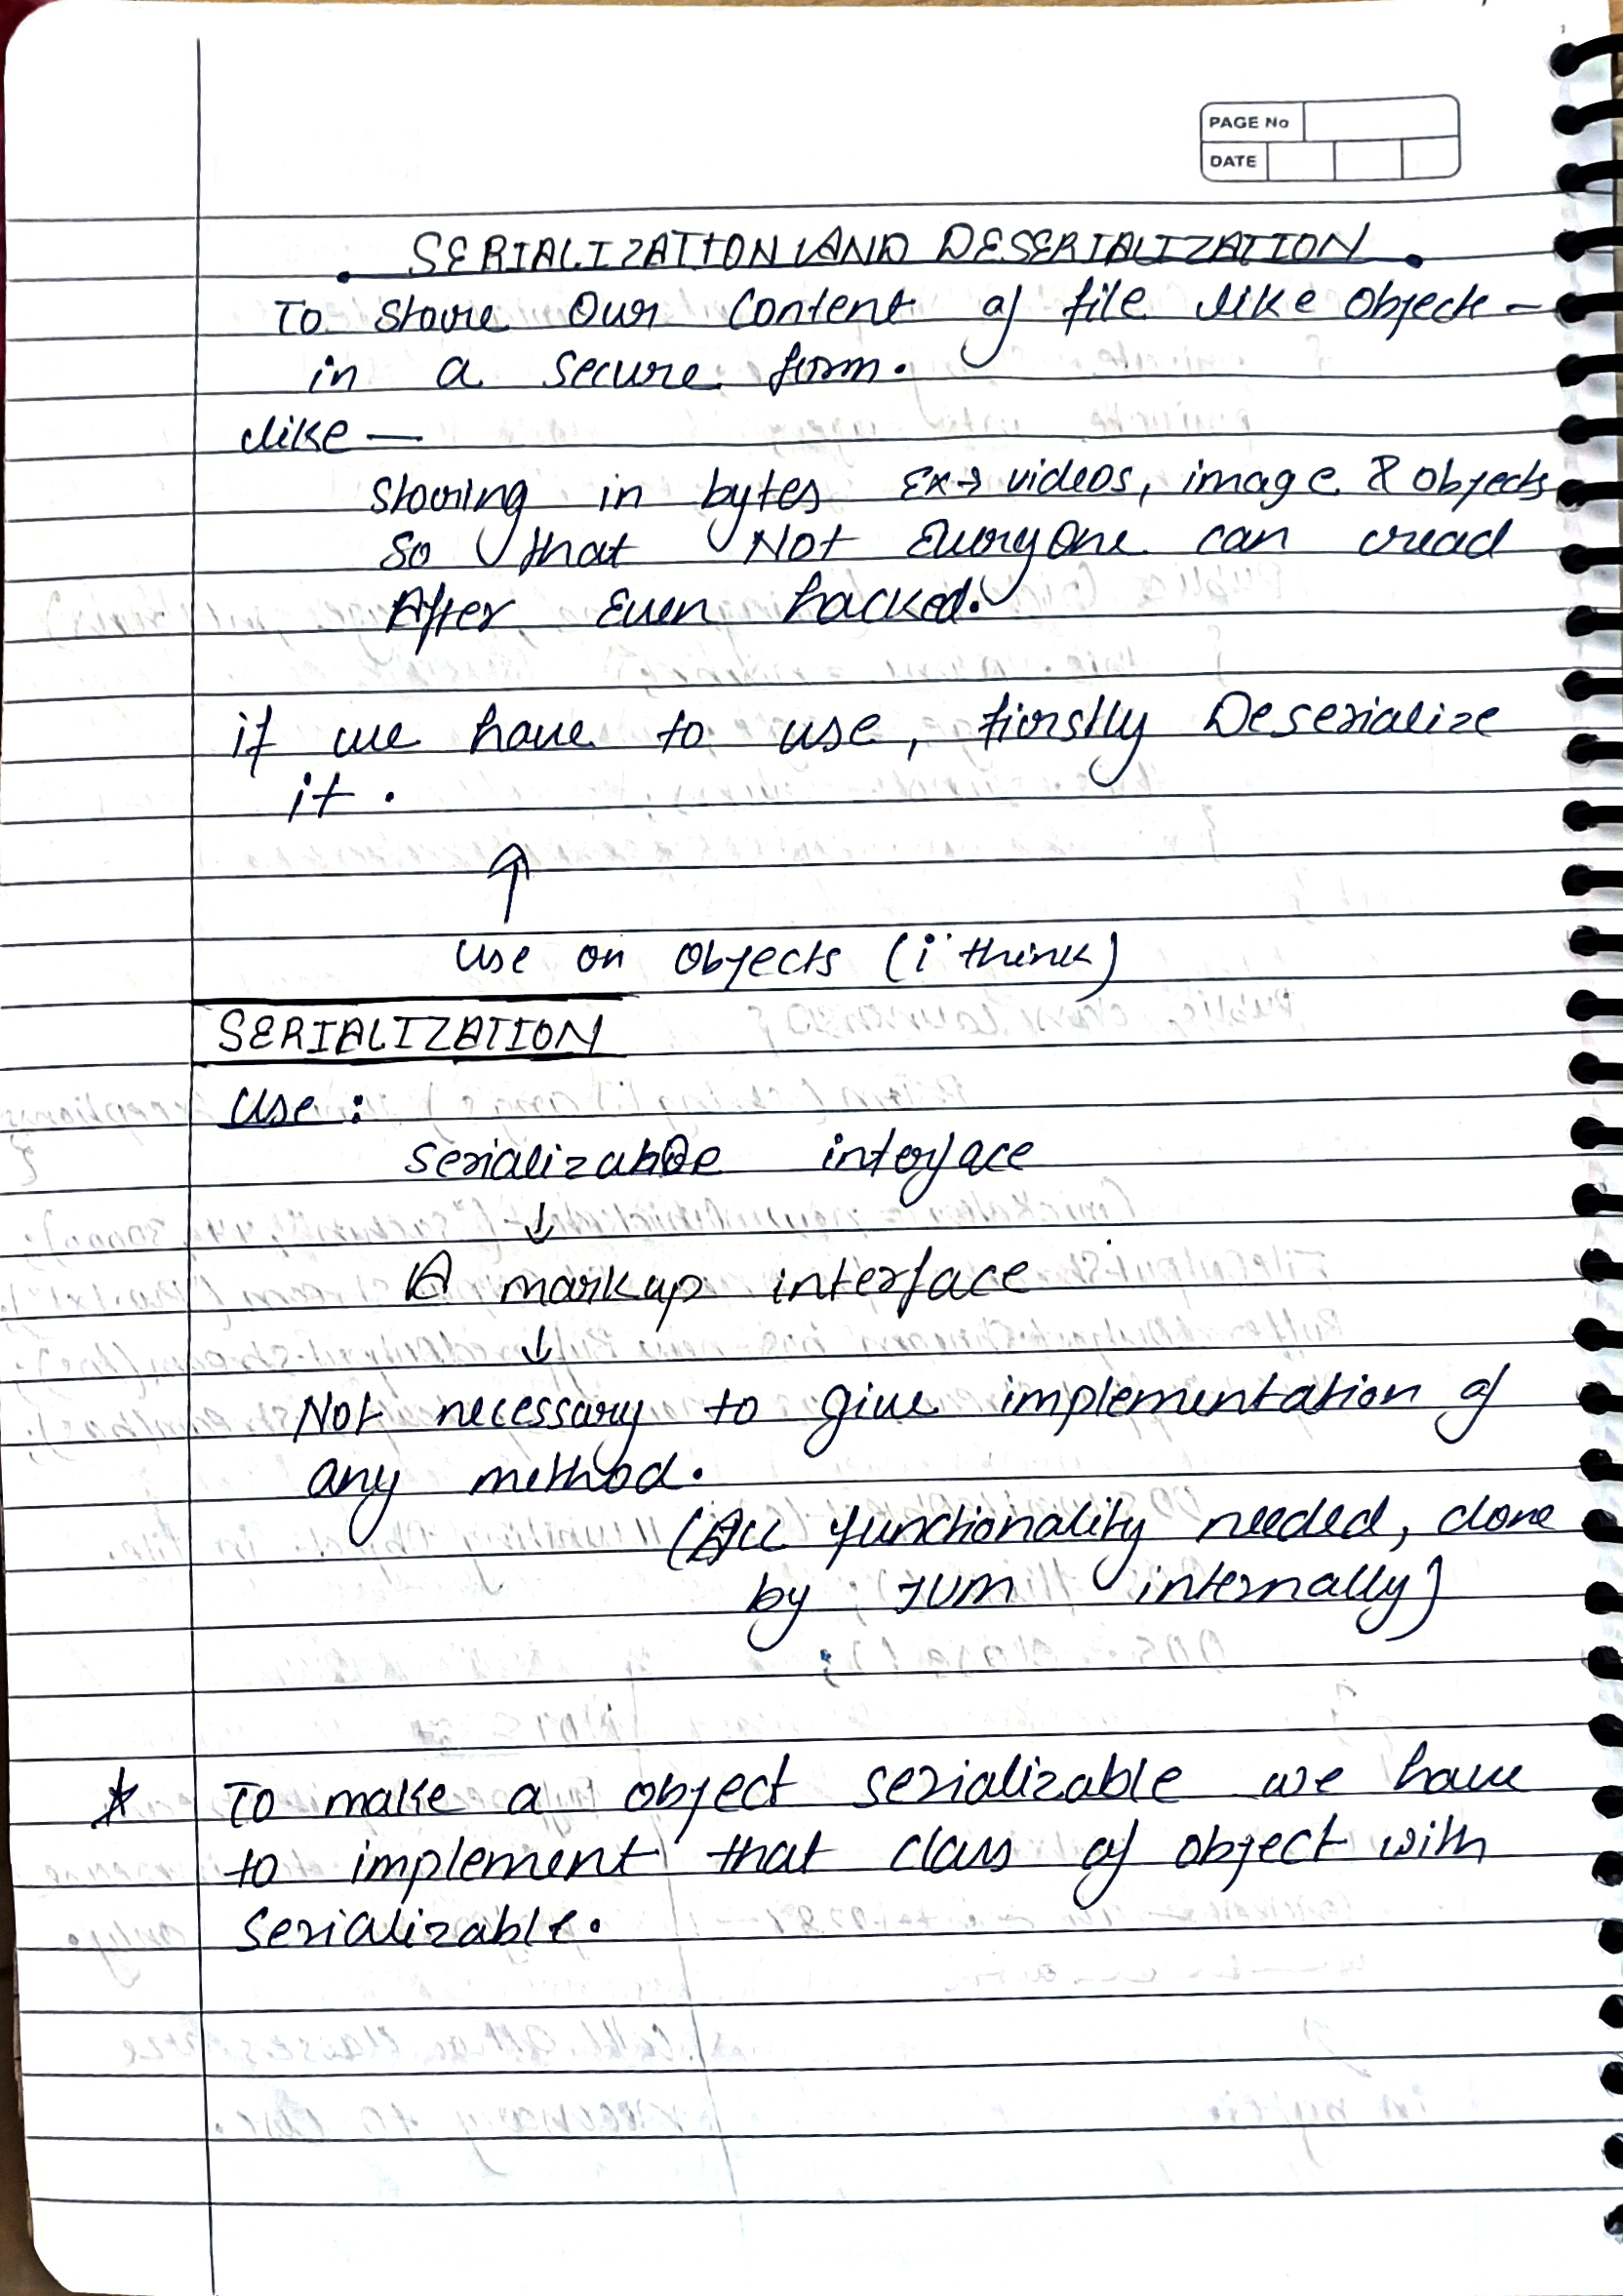 PAGE No
DATE
SERIALIZATION AND DESERIALIZATION
To store Our Content of file like Object –
in a secure form.
like —
Storing in bytes Ex→ videos, image & objects
So that Not Everyone can read
After Even hacked.
if we have to use, firstly Deserialize
it.
↑
use on Objects (i think)
SERIALIZATION
Use :
Serializable interface
↓
A markup interface
↓
Not necessary to give implementation of
any method.
(All functionality needed, done
by JVM internally)
* To make a object serializable we have
to implement that class of object with
Serializable.